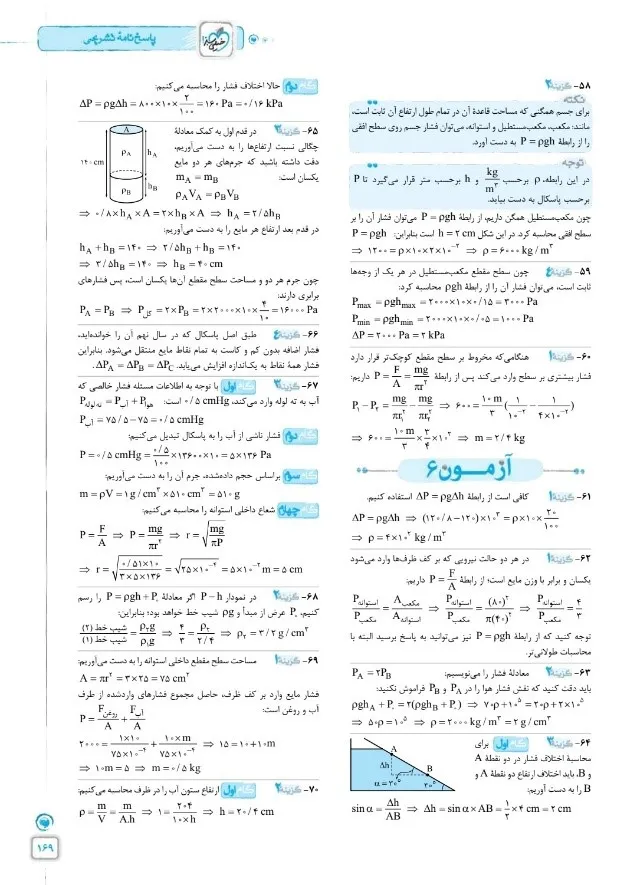 پاسخ‌نامهٔ تشریحی
۵۸- گزینهٔ
نکته
برای جسم همگنی که مساحت قاعدهٔ آن در تمام طول ارتفاع آن ثابت است،
مانند: مکعب، مکعب‌مستطیل و استوانه، می‌توان فشار جسم روی سطح افقی
را از رابطهٔ P = ρgh به دست آورد.
توجه
در این رابطه، ρ برحسب kg/m³ و h برحسب متر قرار می‌گیرد تا P
برحسب پاسکال به دست بیاید.
چون مکعب‌مستطیل همگن داریم، از رابطهٔ P = ρgh می‌توان فشار آن را بر
سطح افقی محاسبه کرد. در این شکل h = ۲ cm است بنابراین: P = ρgh
⇒ ۱۲۰۰ = ρ×۱۰×۲×۱۰⁻² ⇒ ρ = ۶۰۰۰ kg/m³
۵۹- گزینهٔ
چون سطح مقطع مکعب‌مستطیل در هر یک از وجه‌ها
ثابت است، می‌توان فشار آن را از رابطهٔ P = ρgh محاسبه کرد:
Pmax = ρghmax = ۲۰۰۰×۱۰×۰/۱۵ = ۳۰۰۰ Pa
Pmin = ρghmin = ۲۰۰۰×۱۰×۰/۰۵ = ۱۰۰۰ Pa
ΔP = ۲۰۰۰ Pa = ۲ kPa
۶۰- گزینهٔ
هنگامی‌که مخروط بر سطح مقطع کوچک‌تر قرار دارد
فشار بیشتری بر سطح وارد می‌کند پس از رابطهٔ P = F/A = mg/πr² داریم:
P₁ − P₂ = mg/πr₁² − mg/πr₂² ⇒ ۶۰۰ = ۱۰m/۳ (۱/۱۰⁻² − ۱/۴×۱۰⁻²)
⇒ ۶۰۰ = ۱۰m/۳ × ۳/۴ × ۱۰² ⇒ m = ۲/۴ kg
آزمون ۶
۶۱- گزینهٔ
کافی است از رابطهٔ ΔP = ρgΔh استفاده کنیم.
ΔP = ρgΔh ⇒ (۱۲۰/۸ − ۱۲۰)×۱۰³ = ρ×۱۰×۲۰/۱۰۰
⇒ ρ = ۴×۱۰² kg/m³
۶۲- گزینهٔ
در هر دو حالت نیرویی که بر کف ظرف‌ها وارد می‌شود
یکسان و برابر با وزن مایع است؛ از رابطهٔ P = F/A داریم:
P استوانه / P مکعب = A مکعب / A استوانه ⇒ P استوانه / P مکعب = (۸۰)²/π(۴۰)² ⇒ P استوانه / P مکعب = ۴/۳
توجه کنید که از رابطهٔ P = ρgh نیز می‌توانید به پاسخ برسید البته با
محاسبات طولانی‌تر.
۶۳- گزینهٔ
معادلهٔ فشار را می‌نویسیم: P_A = ۲P_B
باید دقت کنید که نقش فشار هوا را در P_A و P_B فراموش نکنید:
ρgh_A + P₀ = ۲(ρgh_B + P₀) ⇒ ۷۰ρ + ۱۰⁵ = ۲۰ρ + ۲×۱۰⁵
⇒ ۵۰ρ = ۱۰⁵ ⇒ ρ = ۲۰۰۰ kg/m³ = ۲ g/cm³
۶۴- گزینهٔ
گام اول برای
محاسبهٔ اختلاف فشار در دو نقطهٔ A
و B، باید اختلاف ارتفاع دو نقطهٔ A و
B را به دست آوریم:
A
Δh
B
α = ۳۰°
۳۰°
sin α = Δh/AB ⇒ Δh = sin α × AB = ۱/۲ × ۴ cm = ۲ cm
گام دوم حالا اختلاف فشار را محاسبه می‌کنیم:
ΔP = ρgΔh = ۸۰۰×۱۰×۲/۱۰۰ = ۱۶۰ Pa = ۰/۱۶ kPa
۶۵- گزینهٔ
در قدم اول به کمک معادلهٔ
چگالی نسبت ارتفاع‌ها را به دست می‌آوریم،
دقت داشته باشید که جرم‌های هر دو مایع
یکسان است: m_A = m_B
ρ_A V_A = ρ_B V_B
A
ρ_A
h_A
۱۴۰ cm
ρ_B
h_B
⇒ ۰/۸×h_A×A = ۲×h_B×A ⇒ h_A = ۲/۵h_B
در قدم بعد ارتفاع هر مایع را به دست می‌آوریم:
h_A + h_B = ۱۴۰ ⇒ ۲/۵h_B + h_B = ۱۴۰
⇒ ۳/۵h_B = ۱۴۰ ⇒ h_B = ۴۰ cm
چون جرم هر دو و مساحت سطح مقطع آن‌ها یکسان است، پس فشارهای
برابری دارند:
P_A = P_B ⇒ P کل = ۲×P_B = ۲×۲۰۰۰×۱۰×۴/۱۰ = ۱۶۰۰۰ Pa
۶۶- گزینهٔ
طبق اصل پاسکال که در سال نهم آن را خوانده‌اید،
فشار اضافه بدون کم و کاست به تمام نقاط مایع منتقل می‌شود. بنابراین
فشار همهٔ نقاط به یک‌اندازه افزایش می‌یابد. ΔP_A = ΔP_B = ΔP_C.
۶۷- گزینهٔ
گام اول با توجه به اطلاعات مسئله فشار خالصی که
آب به ته لوله وارد می‌کند، ۰/۵ cmHg است: P ته لوله = P آب + P هوا
P آب = ۷۵/۵ − ۷۵ = ۰/۵ cmHg
گام دوم فشار ناشی از آب را به پاسکال تبدیل می‌کنیم:
P = ۰/۵ cmHg = ۰/۵/۱۰۰ × ۱۳۶۰۰×۱۰ = ۵×۱۳۶ Pa
گام سوم براساس حجم داده‌شده، جرم آن را به دست می‌آوریم:
m = ρV = ۱ g/cm³ × ۵۱۰ cm³ = ۵۱۰ g
گام چهارم شعاع داخلی استوانه را محاسبه می‌کنیم:
P = F/A ⇒ P = mg/πr² ⇒ r = √(mg/πP)
⇒ r = √(۰/۵۱×۱۰ / ۳×۵×۱۳۶) = √(۲۵×۱۰⁻⁴) = ۵×۱۰⁻² m = ۵ cm
۶۸- گزینهٔ
در نمودار P − h اگر معادلهٔ P = ρgh + P₀ را رسم
کنیم، P₀ عرض از مبدأ و ρg شیب خط خواهد بود؛ بنابراین:
شیب خط (۲) / شیب خط (۱) = ρ₂g/ρ₁g ⇒ ۴/۳ = ρ₂/۲/۴ ⇒ ρ₂ = ۳/۲ g/cm³
۶۹- گزینهٔ
مساحت سطح مقطع داخلی استوانه را به دست می‌آوریم:
A = πr² = ۳×۲۵ = ۷۵ cm²
فشار مایع وارد بر کف ظرف، حاصل مجموع فشارهای واردشده از طرف
آب و روغن است:
P = F روغن/A + F آب/A
۲۰۰۰ = ۱×۱۰/۷۵×۱۰⁻⁴ + ۱۰×m/۷۵×۱۰⁻⁴ ⇒ ۱۵ = ۱۰ + ۱۰m
⇒ ۱۰m = ۵ ⇒ m = ۰/۵ kg
۷۰- گزینهٔ
گام اول ارتفاع ستون آب را در ظرف محاسبه می‌کنیم:
ρ = m/V = m/A.h ⇒ ۱ = ۲۰۴/۱۰×h ⇒ h = ۲۰/۴ cm
۱۶۹